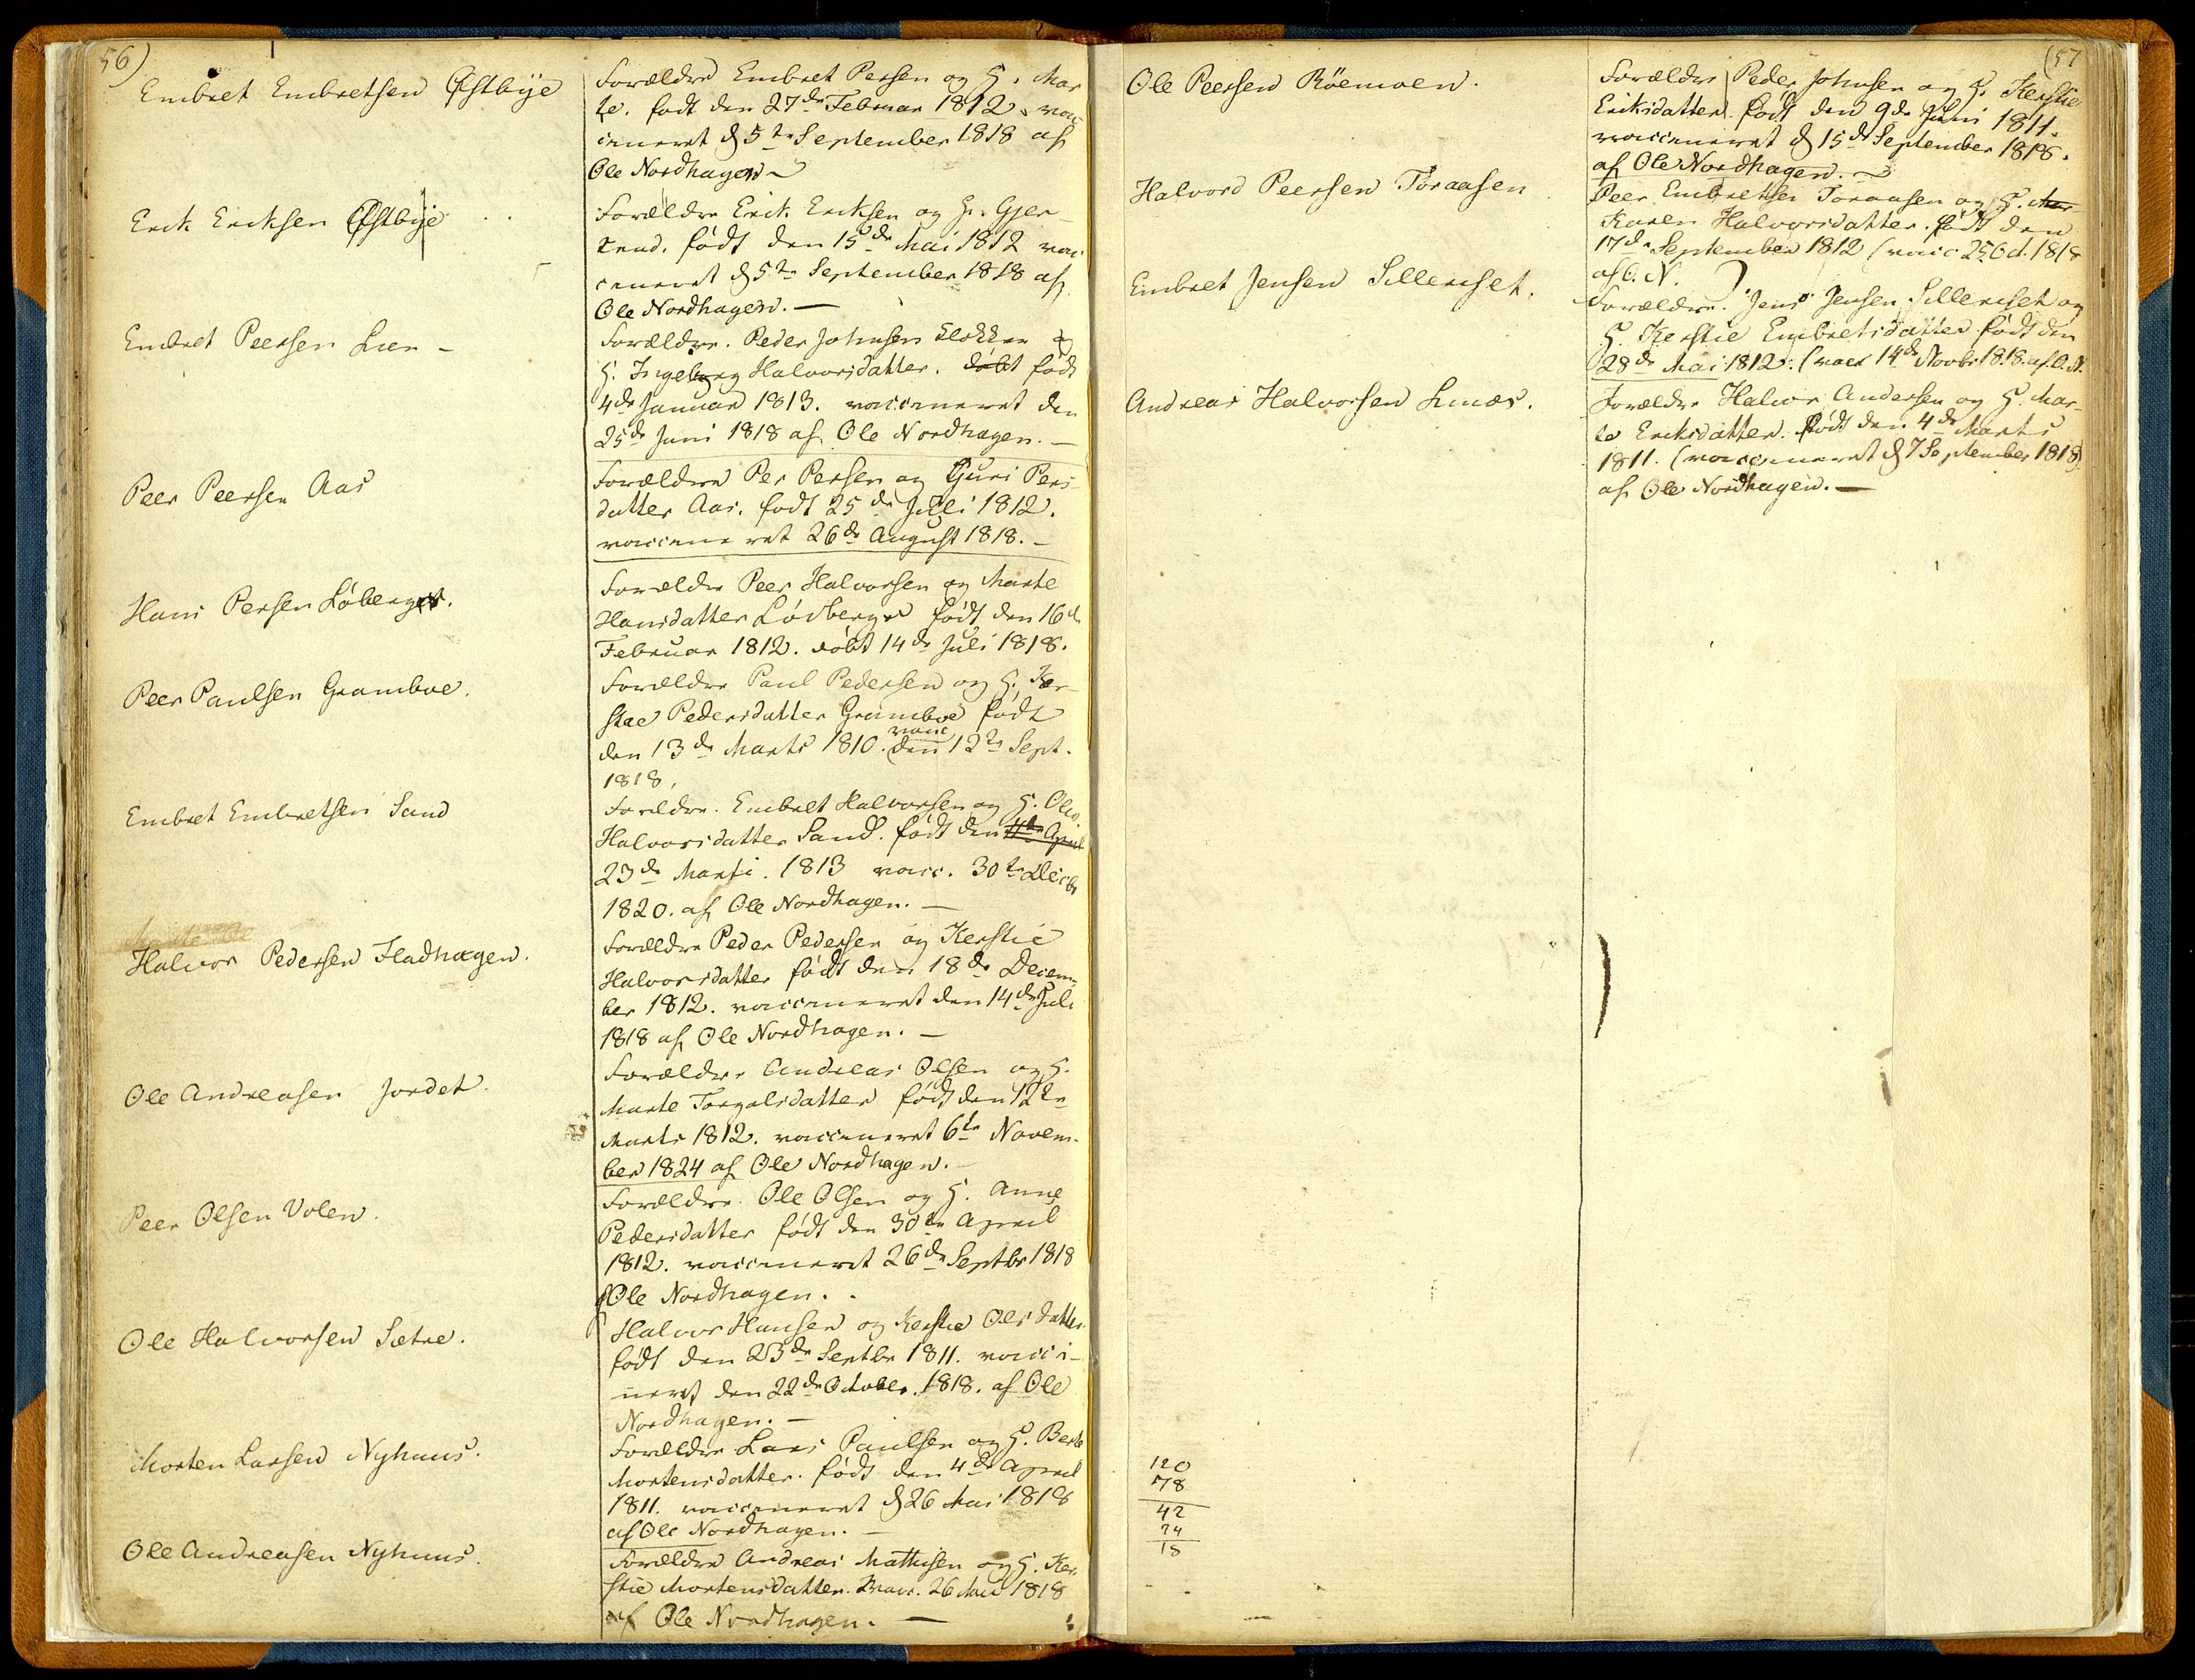 56)
Embret Embretsen Østbÿe
Forældre Embret Persen og H. Mar
te. født den 27de Februar 1812. vac
cineret d 5te September 1818 af
Ole Nordhagen
Erik Eriksen Østbÿe
Forældre Erik Eriksen og H. Gjer
trud. født den 15de Mai 1812 vac
cineret d 5te September 1818 af
Ole Nordhagen. —
Embret Peersen Lien —
Forældre. Peder Johnsen Klokker og
H. Ingeborg Halvorsdatter. døbt født
4de Januar 1813. vaccineret den
25de Juni 1818 af Ole Nordhagen. —
Peer Peersen Aas
Forældre Per Persen og Guri Pers-
datter Aas. født 25de Juli 1812.
vaccineret 26de August 1818. —
Hans Persen Löberget.
Forældre Peer Halvorsen og Marte
Hansdatter Lövberget født den 16de
Februar 1812. döbt 14de Juli 1818.
Peer Paulsen Gramboe.
Forældre Paul Pedersen og H. Ker-
stie Pedersdatter Gramboe født
den 13de Marts 1810. vacc den 12te Sept.
1818,
Embret Embretsen Sand
Forældre. Embret Halvorsen og H. Olea
Halvorsdatter Sand. født den 4de April
23de Marti. 1813 vacc. 30te Decbr
1820. af Ole Nordhagen. —
Halvor Pedersen Fladhagen.
Forældre Peder Pedersen og Kerstie
Halvorsdatter født den 18de Decem-
ber 1812. vaccineret den 14de Juli
1818 af Ole Nordhagen. —
Ole Andreasen Jordet.
Forældre Andreas Olsen og H.
Marte Torgalsdatter født den 12te
Marts 1812. vaccineret 6te Novem-
ber 1824 af Ole Nordhagen. —
Peer Olsen Volen.
Forældre. Ole Olsen og H. Anne
Pedersdatter født den 30te April
1812. vaccineret 26de Septbr 1818
Ole Nordhagen. .
Ole Halvorsen Sætre.
Halvor Hansen og Kerstie Olsdatter
født den 23de Septbr 1811. vacci-
neret den 22de October. 1818. af Ole
Nordhagen. —
Morten Larsen Nyhuus.
Forældre Lars Paulsen og H. Berte
Mortensdatter. født den 4de April
1811. vaccineret d 26 Mai 1818
af Ole Nordhagen. —
Ole Andreasen Nyhuus.
Forældre Andreas Mathisen og H. Ker
stie Mortensdatter. vacc. 26 Mai 1818
af Ole Nordhagen. —
(57
Ole Peersen Röemoen.
Forældre Peder Johnsen og H. Kerstie
Eriksdatter. født den 9de Juni 1811.
vaccineret d 15de September 1818.
af Ole Nordhagen.
Halvord Peersen Toraasen
Peer Embretsen Toraasen og H. Mar-
Karen Halvorsdatter. født den
17de September 1812 (vacc 25 Oct. 1818
af O. N. )
Embret Jensen Sillerset.
Forældre. Jens Jensen Sillerset og
H. Kerstie Embretsdatter født den
28de Mai 1812: (vacc 14de Novbr 1818. af O. N.
Andreas Halvorsen Lunæs.
Forældre Halvor Andersen og H. Mar-
te Eriksdatter. født den 4de Marts
1811. (vaccineret d 7 September 1818)
af Ole Nordhagen. —
120
78
42
24
18